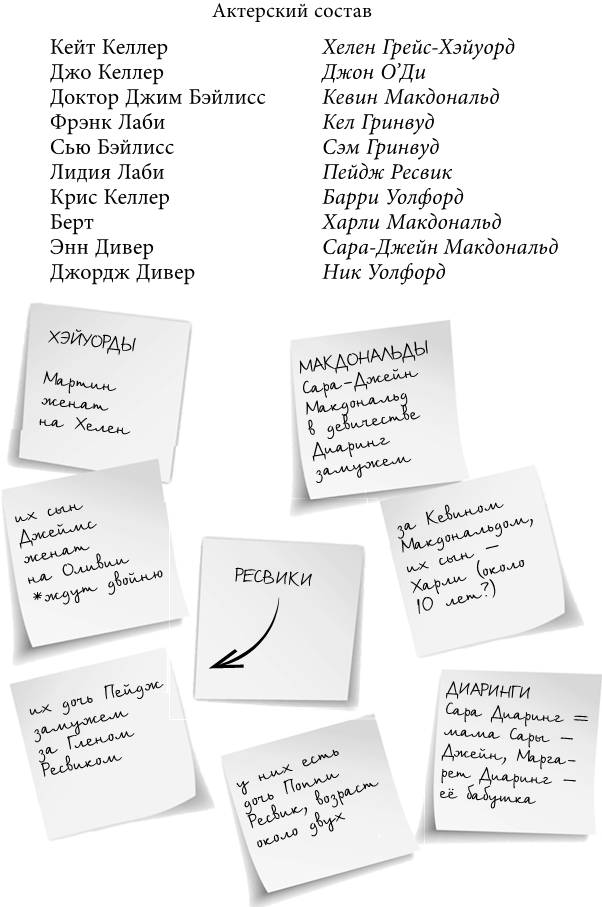 Актерский состав
Кейт Келлер Хелен Грейс-Хэйуорд
Джо Келлер Джон О’Ди
Доктор Джим Бэйлисс Кевин Макдональд
Фрэнк Лаби Кел Гринвуд
Сью Бэйлисс Сэм Гринвуд
Лидия Лаби Пейдж Ресвик
Крис Келлер Барри Уолфорд
Берт Харли Макдональд
Энн Дивер Сара-Джейн Макдональд
Джордж Дивер Ник Уолфорд
ХЭЙУОРДЫ
Мартин
женат
на Хелен
МАКДОНАЛЬДЫ
Сара-Джейн
Макдональд
в девичестве
Диаринг
замужем
их сын
Джеймс
женат
на Оливии
*ждут двойню
за Кевином
Макдональдом,
их сын –
Харли (около
10 лет?)
РЕСВИКИ
их дочь Пейдж
замужем
за Гленом
Ресвиком
у них есть
дочь Поппи
Ресвик, возраст
около двух
ДИАРИНГИ
Сара Диаринг =
мама Сары –
Джейн, Марга-
рет Диаринг –
её бабушка